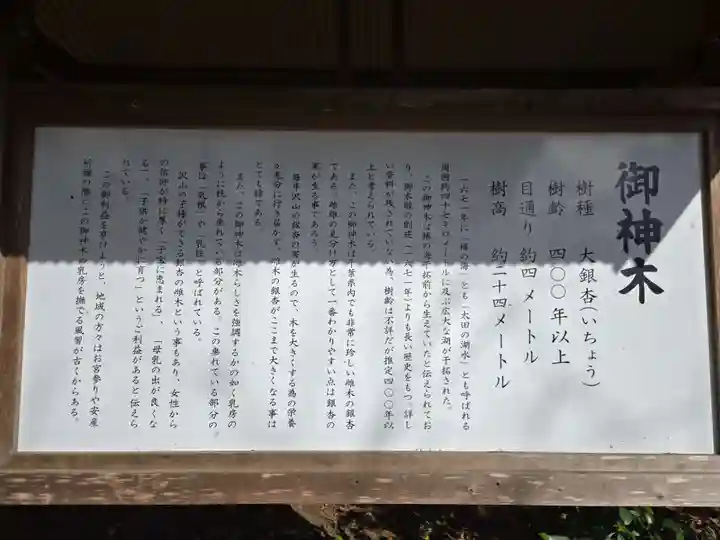 御神木
樹種　大銀杏(いちょう)
樹齢　四〇〇年以上
目通り　約四メートル
樹高　約二十四メートル
一六七一年に「椿の海」とも「太田の湖水」とも呼ばれる
周囲約四十七キロメートルに及ぶ広大な湖が干拓された。
この御神木は椿の海干拓前から生えていたと伝えられてお
り、御本殿の創建(一六七一年)よりも長い歴史をもつ。詳し
い資料が残されていない為、樹齢は不詳だが推定四〇〇年以
上と考えられている。
また、この御神木は千葉県内でも非常に珍しい雌木の銀杏
である。雌雄の見分け方として一番わかりやすい点は銀杏の
実が生る事であろう。
毎年沢山の銀杏の実が生るので、木を大きくする為の栄養
が充分に行き届かず、雌木の銀杏がここまで大きくなる事は
とても稀である。
また、この御神木は雌木らしさを強調するかの如く乳房の
ように枝から垂れている部分がある。この垂れている部分の
事は「乳根」や「乳柱」と呼ばれている。
沢山の子種ができる銀杏の雌木という事もあり、女性から
の信仰が特に厚く「子宝に恵まれる」、「母乳の出が良くな
る」、「子供が健やかに育つ」というご利益があると伝えら
れている。
この御利益を享けようと、地域の方々はお宮参りや安産
祈願の際にこの御神木の乳房を撫でる風習が古くからある。